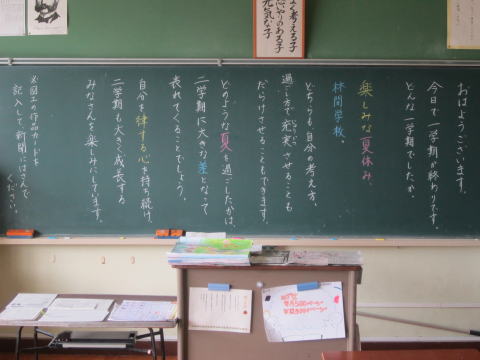 よく考える子
思いやりのある子
元気な子
おはようございます。
今日で一学期が終わりです。
どんな一学期でしたか。
楽しみな夏休み、
林間学校、
どちらも自分の考え方、
過ごし方で充実させることも
だらけさせることもできます。
どのような夏を過ごしたかは、
二学期に大きな差となって
表れてくることでしょう。
自分を律する心を持ち続け、
二学期も大きく成長する
みなさんを楽しみにしています。
※図工の作品カードを
記入して新聞にはさんで
ください。